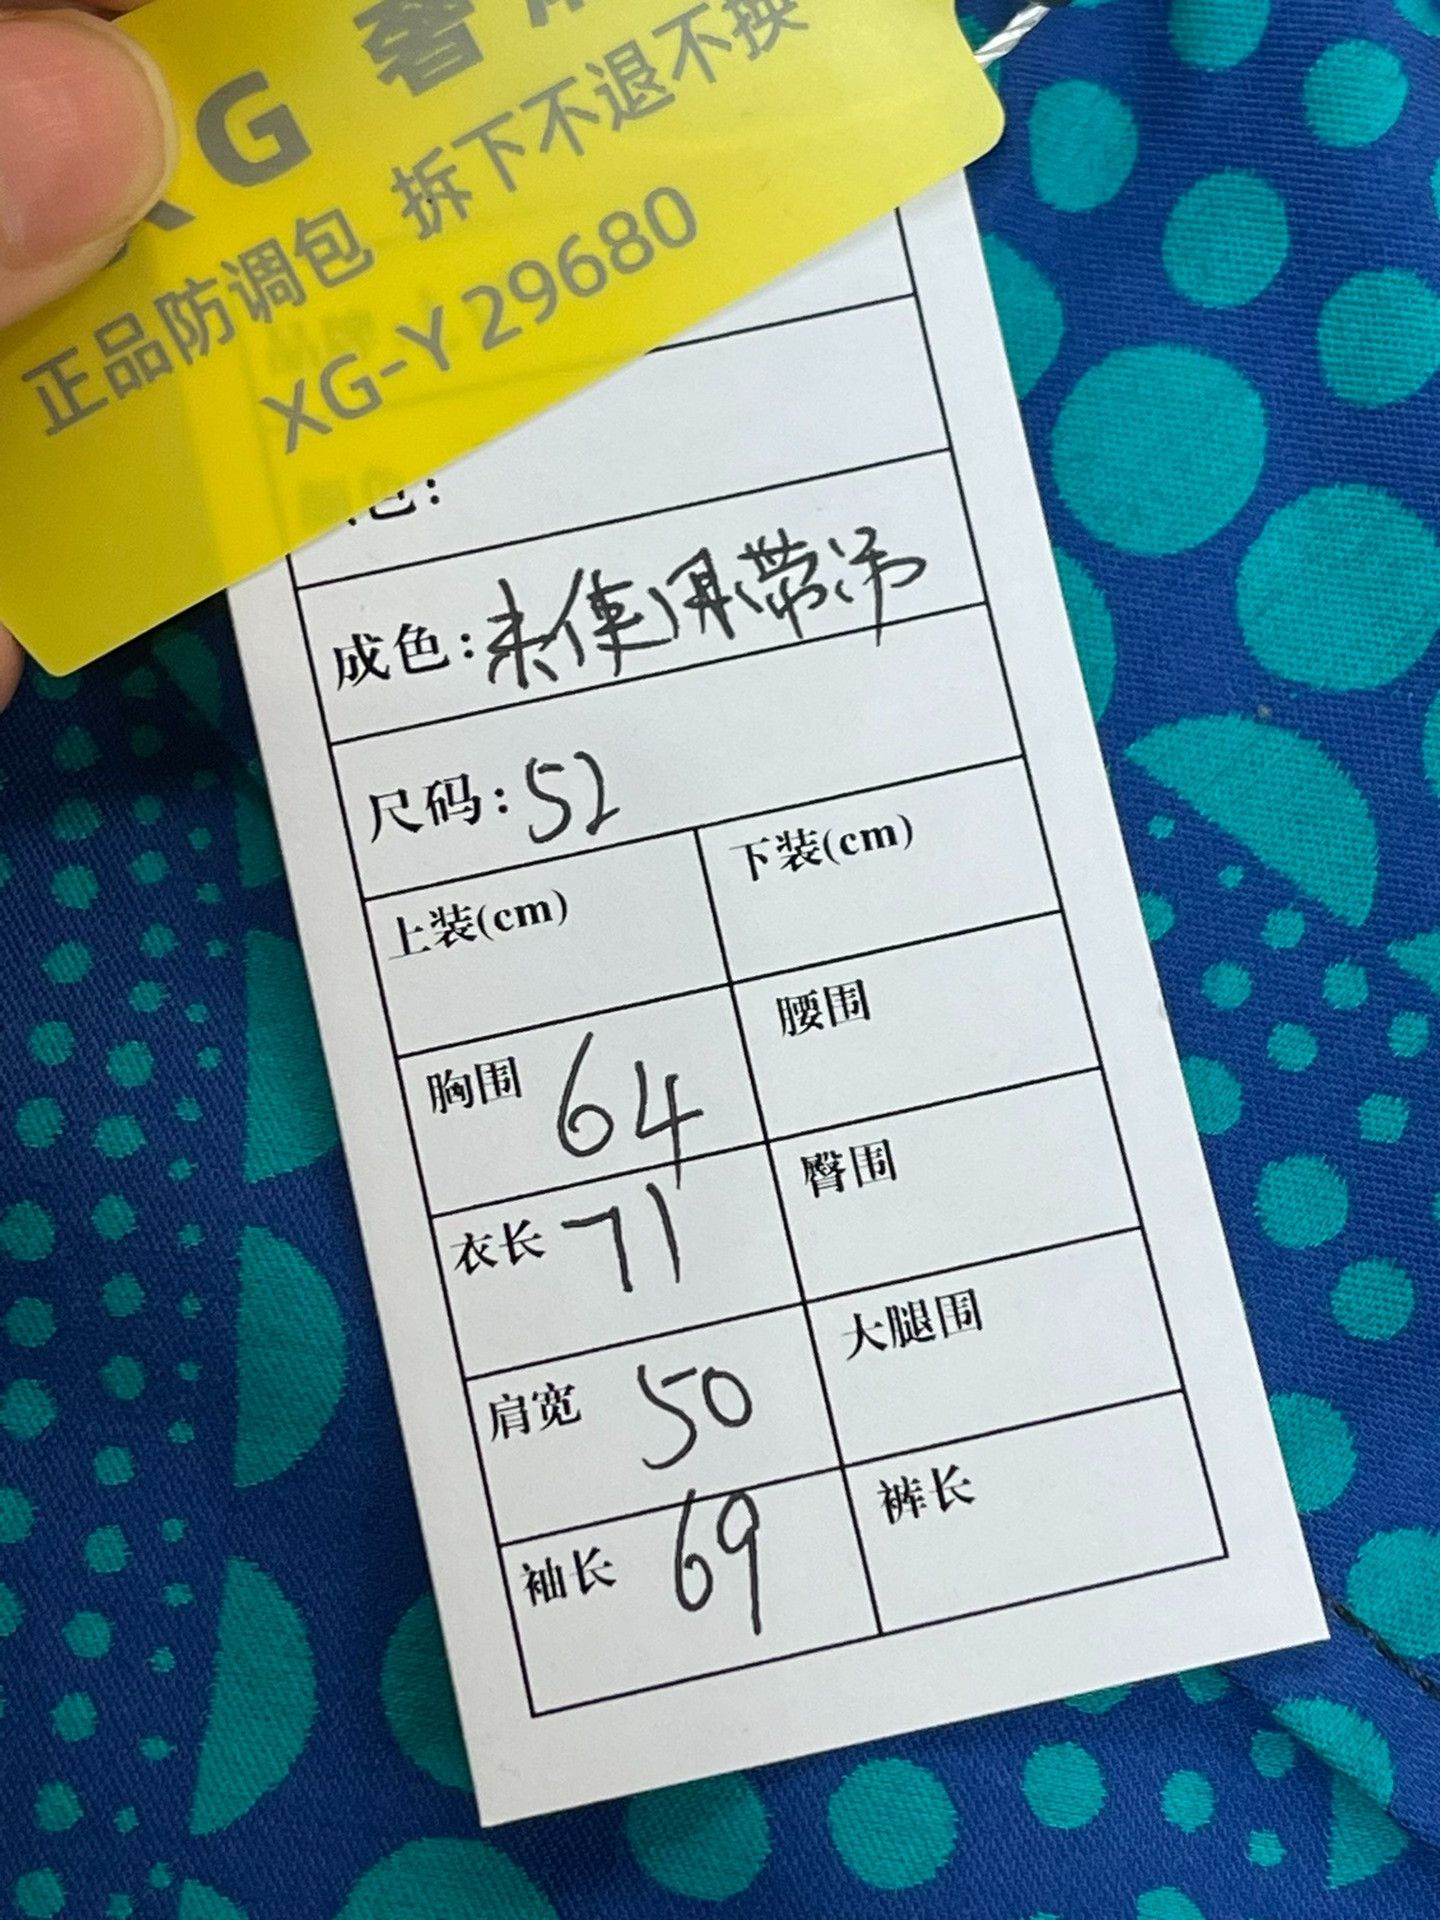 G 奢
正品防调包 拆下不退不换
XG-Y29680
色:
成色:未使用带吊
尺码:52
上装(cm) 下装(cm)
胸围 64 腰围
衣长 71 臀围
肩宽 50 大腿围
袖长 69 裤长